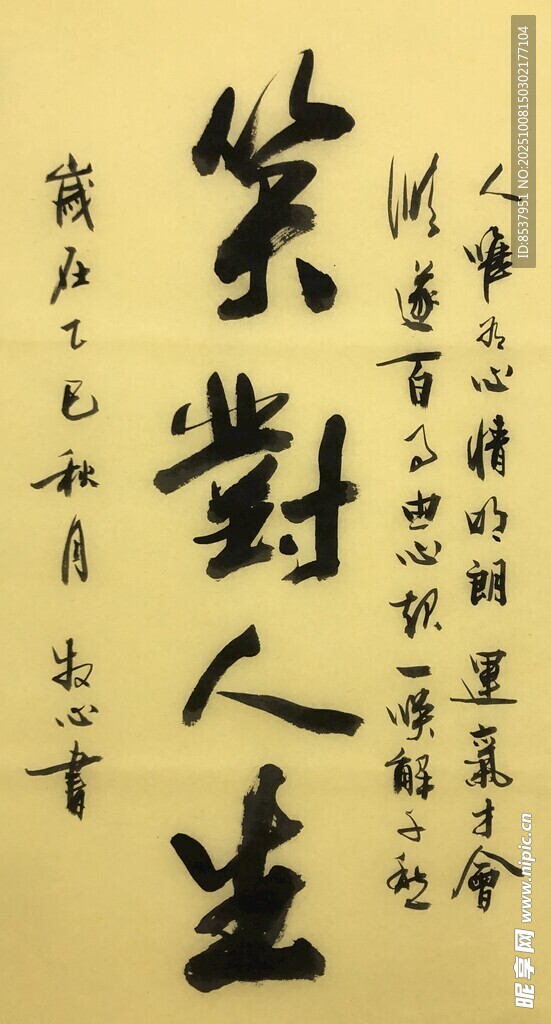 人唯有心情明朗 運氣才會
順遂百事由心起 一笑解千愁
笑對人生
歲在乙巳秋月 牧心書
ID:8537951 NO:20251008150302177104
昵享网 www.nipic.cn